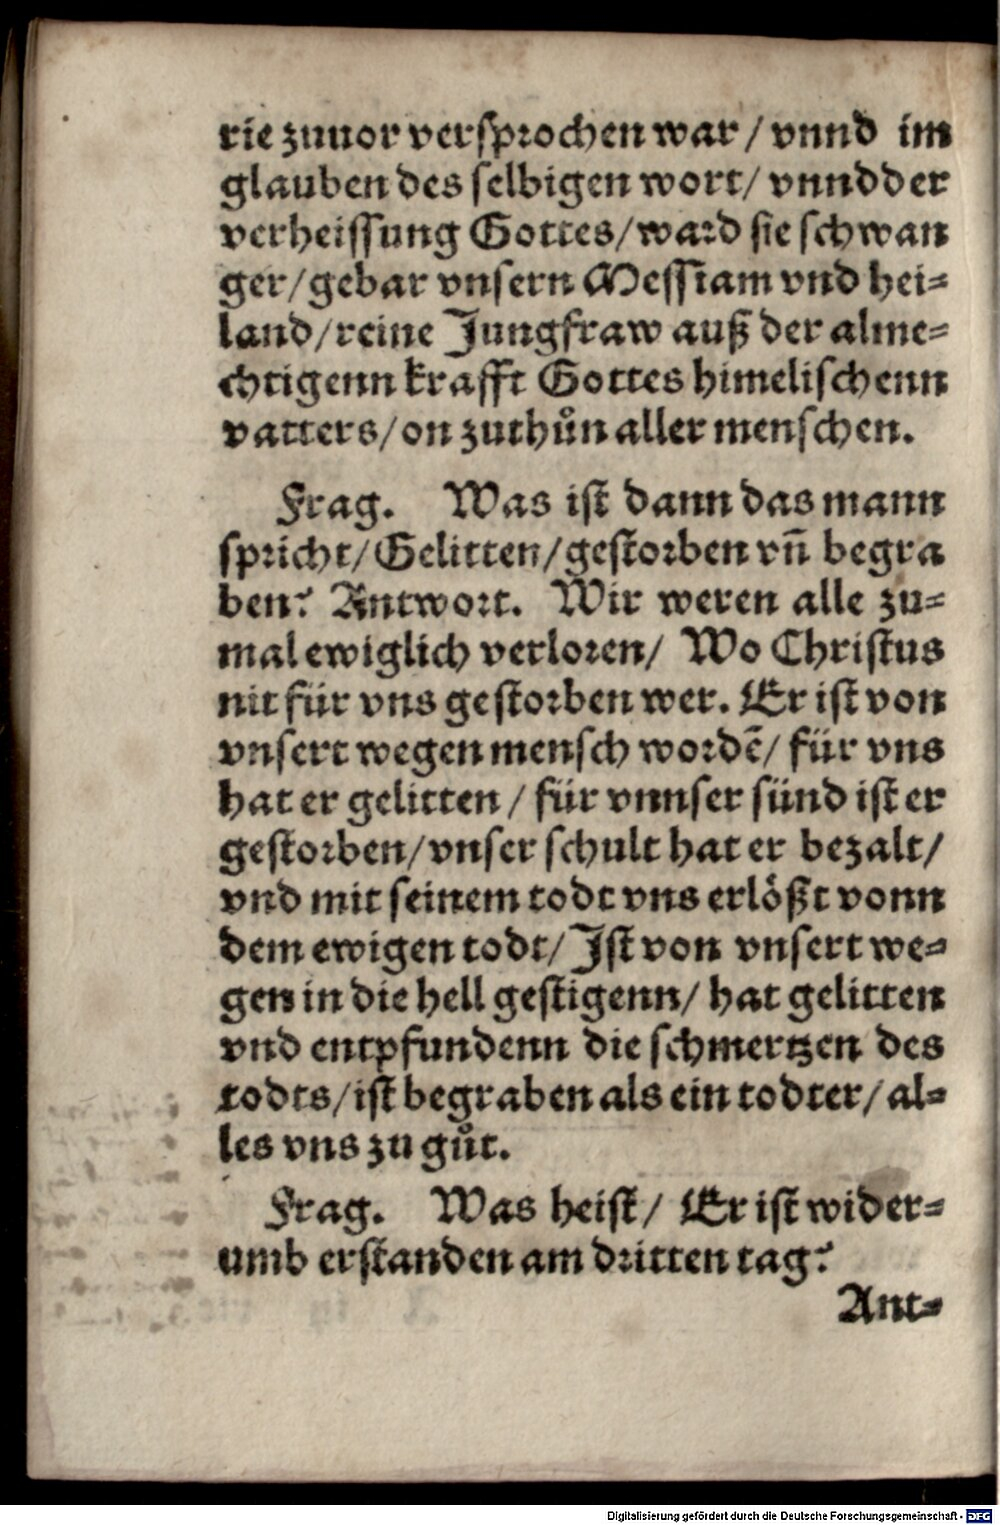 rie zuuor versprochen war / vnnd im
glauben des selbigen wort / vnnd der
verheissung Gottes / ward sie schwan
ger / gebar vnsern Messiam vnd hei⸗
land / reine Jungfraw auß der alme⸗
chtigenn krafft Gottes himelischenn
vatters / on zuthůn aller menschen.
Frag. Was ist dann das mann
spricht / Gelitten / gestorben vn̄ begra
ben? Antwort. Wir weren alle zu⸗
mal ewiglich verloren / Wo Christus
nit für vns gestorben wer. Er ist von
vnsert wegen mensch wordē / für vns
hat er gelitten / für vnnser sünd ist er
gestorben / vnser schult hat er bezalt /
vnd mit seinem todt vns erlößt vonn
dem ewigen todt / Ist von vnsert we⸗
gen in die hell gestigenn / hat gelitten
vnd entpfundenn die schmertzen des
todts / ist begraben als ein todter / al⸗
les vns zu gůt.
Frag. Was heist / Er ist wider⸗
umb erstanden am dritten tag?
Ant⸗
Digitalisierung gefördert durch die Deutsche Forschungsgemeinschaft - DFG